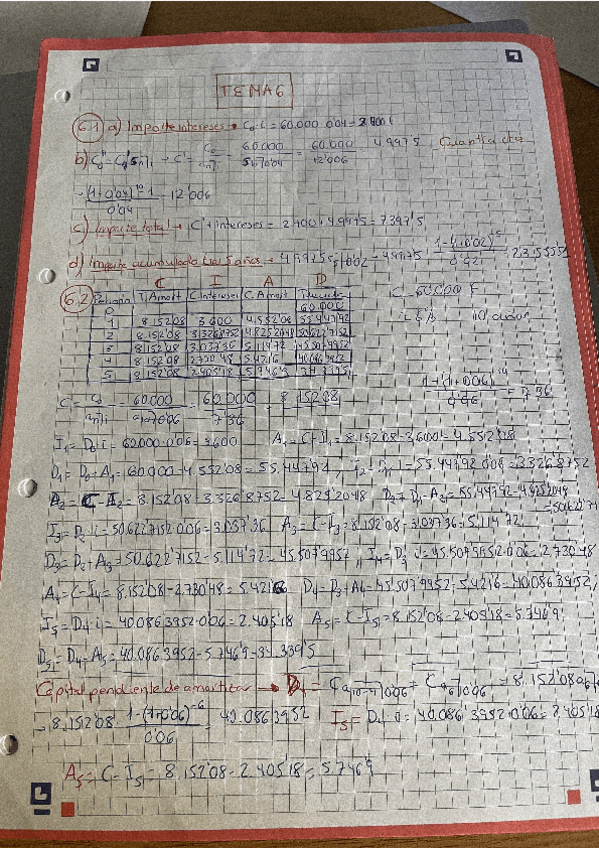 TEMA 6
6.1 a) Importe intereses → C₀·i = 60.000·0'04 = 2.400
b) C₀ = C' S n̅|i → C' = C₀ / S n̅|i = 60.000 / S 10̅|0'04 = 60.000 / 12'006 = 4.997'5 Cuantía cte
→ (1+0'04)¹⁰ - 1 / 0'04 = 12'006
c) Importe total → C' + intereses = 2.400 + 4.997'5 = 7.397'5
d) Importe acumulado tras 5 años → 4.997'5
C I A D
6.2 T. Amort C. Intereses C. Amort
0 60.000
1 8.152'08 3.600 4.552'08 55.447'92
2 8.152'08 3.326'8752 4.825'2048 50.622'7152
3 8.152'08 3.037'36 5.114'72 45.507'9952
4 8.152'08 2.730'48 5.421'6 40.086'3952
5 8.152'08 2.405'18 5.746'9
C = C₀ / a n̅|i = 60.000 / a 10̅|0'06 = 60.000 / 7'36 = 8.152'08
I₁ = D₀·i = 60.000·0'06 = 3.600 A₁ = C - I₁ = 8.152'08 - 3.600 = 4.552'08
D₁ = D₀ + A₁ = 60.000 - 4.552'08 = 55.447'92, I₂ = D₁·i = 55.447'92·0'06 = 3.326'8752
A₂ = C - I₂ = 8.152'08 - 3.326'8752 = 4.825'2048 D₂ = D₁ - A₂ = 55.447'92 - 4.825'2048
= 50.622'71
I₃ = D₂·i = 50.622'7152·0'06 = 3.037'36 A₃ = C - I₃ = 8.152'08 - 3.037'36 = 5.114'72
D₃ = D₂ + A₃ = 50.622'7152 - 5.114'72 = 45.507'9952, I₄ = D₃·i = 45.507'9952·0'06 = 2.730'48
A₄ = C - I₄ = 8.152'08 - 2.730'48 = 5.421'6 D₄ = D₃ + A₄ = 45.507'9952 - 5.421'6 = 40.086'3952;
I₅ = D₄·i = 40.086'3952·0'06 = 2.405'18 A₅ = C - I₅ = 8.152'08 - 2.405'18 = 5.746'9
D₅ = D₄ - A₅ = 40.086'3952 - 5.746'9 = 34.339'5
Capital pendiente de amortizar → D₄ = C a 10-4|0'06 = C a 6̅|0'06 = 8.152'08
→ 8.152'08 · 1-(1+0'06)⁻⁶ / 0'06 = 40.086'3952 I₅ = D₄·i = 40.086'3952·0'06 = 2.405'18
A₅ = C - I₅ = 8.152'08 - 2.405'18 = 5.746'9